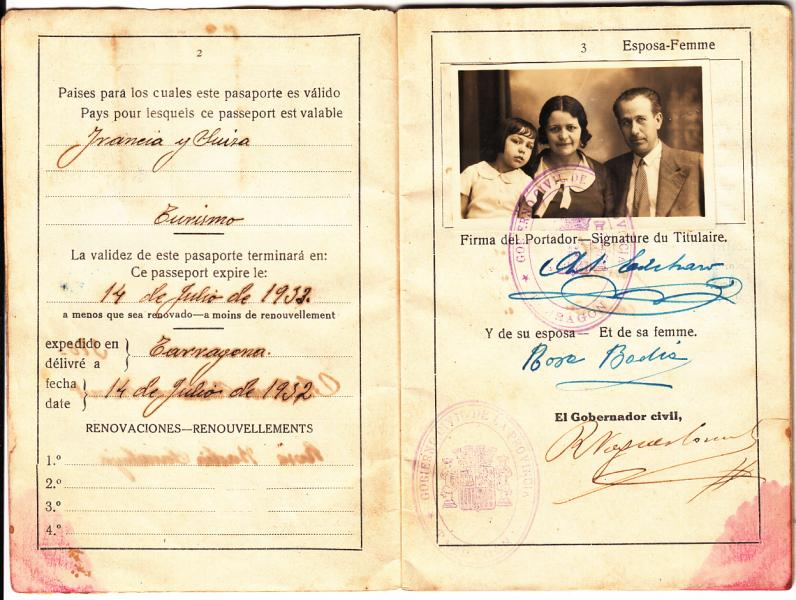 2
Paises para los cuales este pasaporte es válido
Pays pour lesquels ce passeport est valable
Francia y Suiza
Turismo
La validez de este pasaporte terminará en:
Ce passeport expire le:
14 de Julio de 1933.
a menos que sea renovado—a moins de renouvellement
expedido en
délivré a
Tarragona.
fecha
date
14 de Julio de 1932
RENOVACIONES—RENOUVELLEMENTS
1.º
2.º
3.º
4.º
3 Esposa-Femme
Firma del Portador—Signature du Titulaire.
Y de su esposa— Et de sa femme.
Rosa Badia
El Gobernador civil,
GOBIERNO CIVIL DE LA PROVINCIA